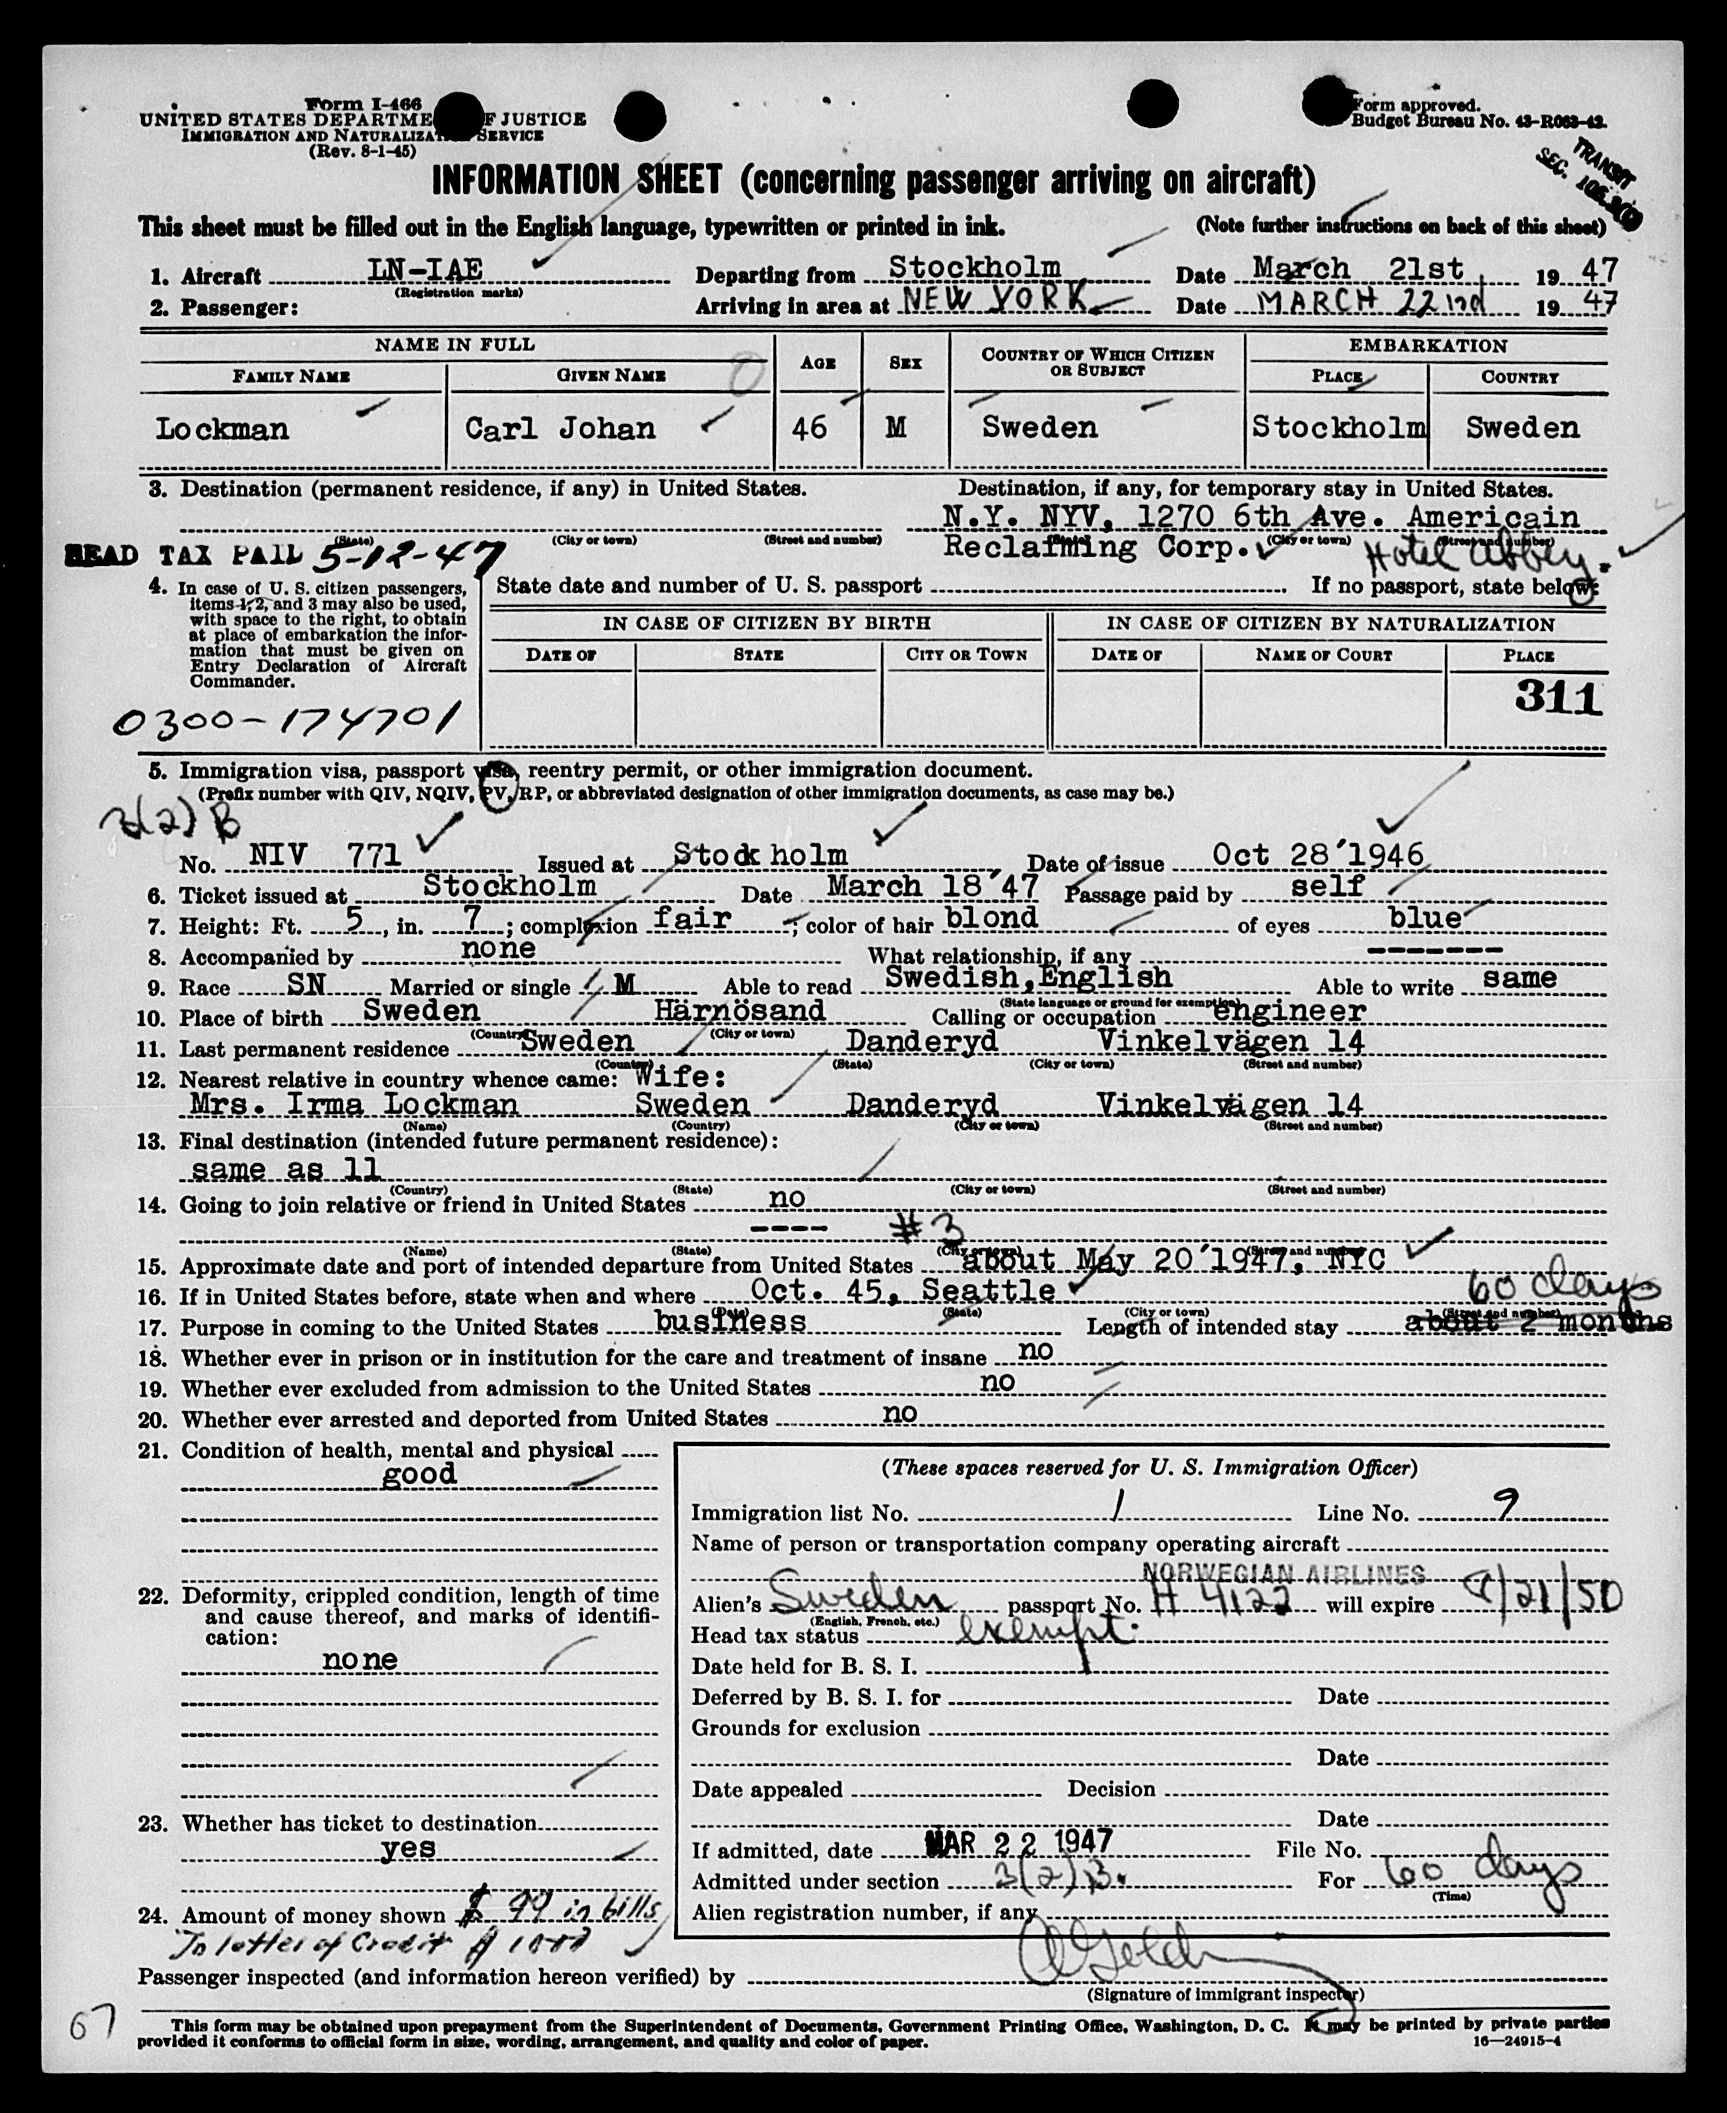 Form I-466
UNITED STATES DEPARTME F JUSTICE
IMMIGRATION AND NATURALIZAT SERVICE
(Rev. 8-1-45)
Form approved.
Budget Bureau No. 43-R063-42.
TRANSIT
SEC.
INFORMATION SHEET (concerning passenger arriving on aircraft)
This sheet must be filled out in the English language, typewritten or printed in ink. (Note further instructions on back of this sheet)
1. Aircraft LN-IAE Departing from Stockholm Date March 21st 19 47
(Registration marks)
2. Passenger: Arriving in area at NEW YORK Date MARCH 22nd 19 47
NAME IN FULL AGE SEX COUNTRY OF WHICH CITIZEN OR SUBJECT EMBARKATION
FAMILY NAME GIVEN NAME PLACE COUNTRY
Lockman Carl Johan 46 M Sweden Stockholm Sweden
3. Destination (permanent residence, if any) in United States. Destination, if any, for temporary stay in United States.
N.Y. NYV, 1270 6th Ave. Americain
(State) (City or town) (Street and number) (State) (City or town) (Street and number)
HEAD TAX PAID 5-12-47 Reclaiming Corp. Hotel Abbey.
4. In case of U. S. citizen passengers, items 1, 2, and 3 may also be used, with space to the right, to obtain at place of embarkation the information that must be given on Entry Declaration of Aircraft Commander.
State date and number of U. S. passport If no passport, state below:
IN CASE OF CITIZEN BY BIRTH IN CASE OF CITIZEN BY NATURALIZATION
DATE OF STATE CITY OR TOWN DATE OF NAME OF COURT PLACE
311
0300-174701
5. Immigration visa, passport visa, reentry permit, or other immigration document.
(Prefix number with QIV, NQIV, PV, RP, or abbreviated designation of other immigration documents, as case may be.)
3(2) B
No. NIV 771 Issued at Stockholm Date of issue Oct 28'1946
6. Ticket issued at Stockholm Date March 18'47 Passage paid by self
7. Height: Ft. 5, in. 7; complexion fair; color of hair blond of eyes blue
8. Accompanied by none What relationship, if any -------
9. Race SN Married or single M Able to read Swedish,English Able to write same
(State language or ground for exemption)
10. Place of birth Sweden Härnösand Calling or occupation engineer
(Country) (City or town)
11. Last permanent residence Sweden Danderyd Vinkelvägen 14
(Country) (State) (City or town) (Street and number)
12. Nearest relative in country whence came: Wife:
Mrs. Irma Lockman Sweden Danderyd Vinkelvägen 14
(Name) (Country) (City or town) (Street and number)
13. Final destination (intended future permanent residence):
same as 11
(Country) (State) (City or town) (Street and number)
14. Going to join relative or friend in United States no
---- #3
(Name) (State) (City or town) (Street and number)
15. Approximate date and port of intended departure from United States about May 20'1947, NYC
16. If in United States before, state when and where Oct. 45, Seattle 60 days
(Date) (State) (City or town) (Street and number)
17. Purpose in coming to the United States business Length of intended stay about 2 months
18. Whether ever in prison or in institution for the care and treatment of insane no
19. Whether ever excluded from admission to the United States no
20. Whether ever arrested and deported from United States no
21. Condition of health, mental and physical
good
22. Deformity, crippled condition, length of time
and cause thereof, and marks of identifi-
cation:
none
23. Whether has ticket to destination
yes
24. Amount of money shown $ 99 in bills
To letter of Credit $
(These spaces reserved for U. S. Immigration Officer)
Immigration list No. 1 Line No. 9
Name of person or transportation company operating aircraft
NORWEGIAN AIRLINES
Alien's Sweden passport No. H 4122 will expire 8/21/50
(English, French, etc.)
Head tax status exempt.
Date held for B. S. I.
Deferred by B. S. I. for Date
Grounds for exclusion
Date
Date appealed Decision
Date
If admitted, date MAR 22 1947 File No.
Admitted under section 3(2)B. For 60 days
(Time)
Alien registration number, if any
Passenger inspected (and information hereon verified) by
(Signature of immigrant inspector)
67
This form may be obtained upon prepayment from the Superintendent of Documents, Government Printing Office, Washington, D. C. It may be printed by private parties
provided it conforms to official form in size, wording, arrangement, and quality and color of paper. 16—24915-4